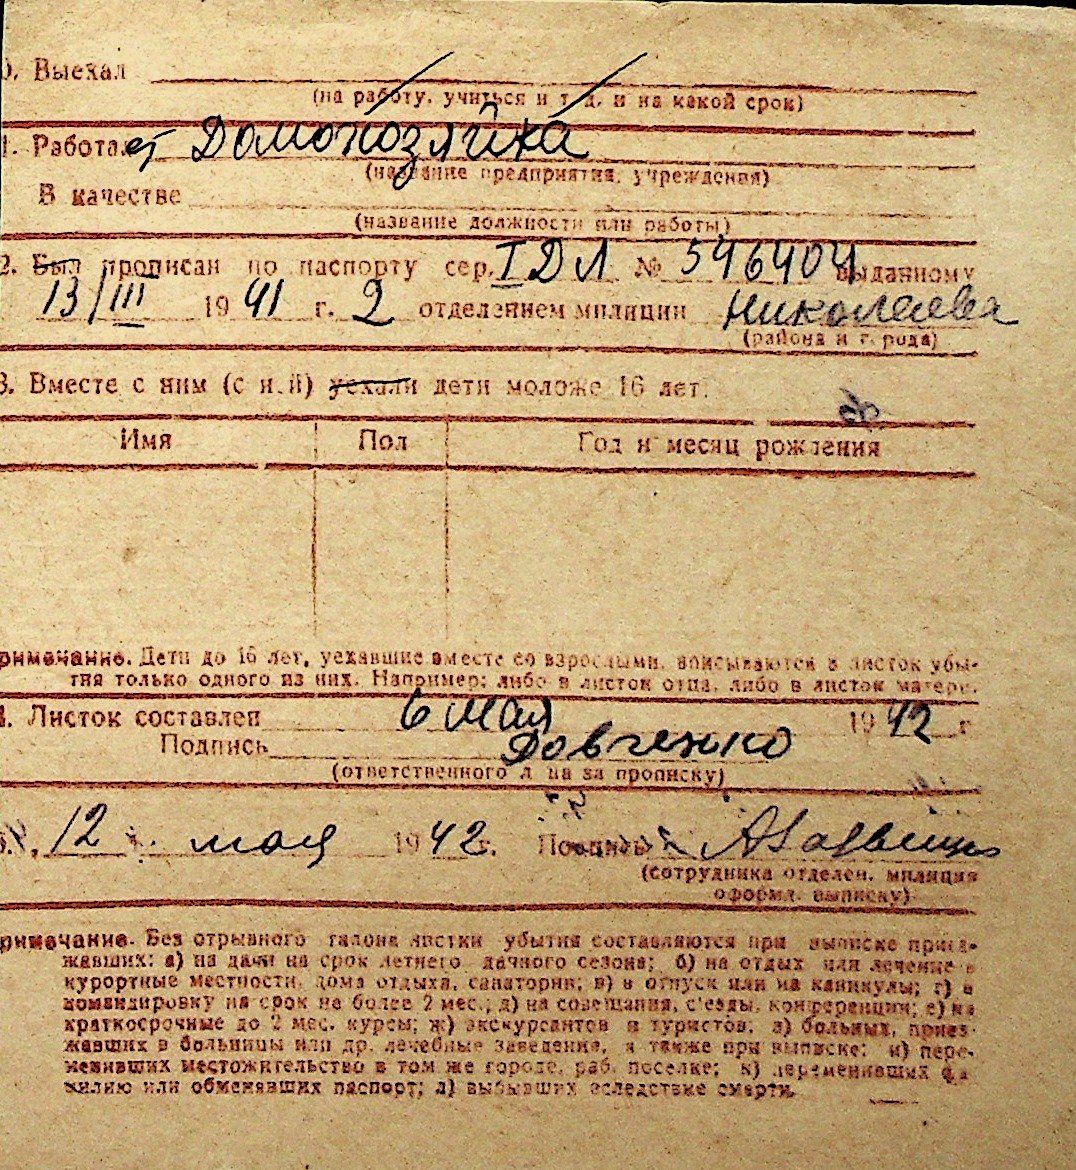 0. Выехал
(на работу, учиться и т. д. и на какой срок)
1. Работает Домохозяйка
(название предприятия, учреждения)
В качестве
(название должности или работы)
2. Был прописан по паспорту сер. I ДЛ № 546404 выданному
13/III 1941 г. 2 отделением милиции Николаева
(района и города)
3. Вместе с ним (с ней) уехали дети моложе 16 лет.
Имя Пол Год и месяц рождения
римечание. Дети до 16 лет, уехавшие вместе со взрослыми, вписываются в листок убы-
тия только одного из них. Например: либо в листок отца, либо в листок матери.
4. Листок составлен 6 мая 1942 г
Подпись Довченко
(ответственного лица за прописку)
12 мая 1942 г. Подпись
(сотрудника отделен. милиции
оформл. выписку)
римечание. Без отрывного талона листки убытия составляются при выписке приез-
жавших: а) на дачи на срок летнего дачного сезона; б) на отдых или лечение в
курортные местности, дома отдыха, санатории; в) в отпуск или на каникулы; г) в
командировку на срок не более 2 мес.; д) на совещания, с'езды, конференции; е) на
краткосрочные до 2 мес. курсы; ж) экскурсантов и туристов, з) больных, приез-
жавших в больницы или др. лечебные заведения, а также при выписке: и) пере-
менивших местожительство в том же городе, раб. поселке; к) переменивших фа-
милию или обменявших паспорт; л) выбывших вследствие смерти.